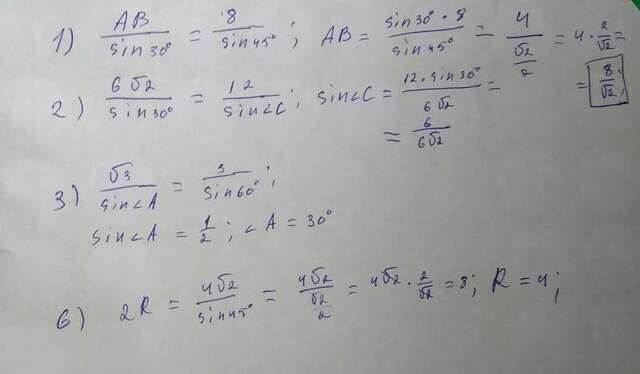 1) AB/sin30° = 8/sin45° ; AB = sin30° · 8/sin45° = 4/(√2/2) = 4 · 2/√2 =
= 8/√2
2) 6√2/sin30° = 12/sin∠C ; sin∠C = 12 · sin30°/6√2 =
= 6/6√2
3) √3/sin∠A = 3/sin60° ;
sin∠A = 1/2 ; ∠A = 30°
6) 2R = 4√2/sin45° = 4√2/(√2/2) = 4√2 · 2/√2 = 8; R = 4;